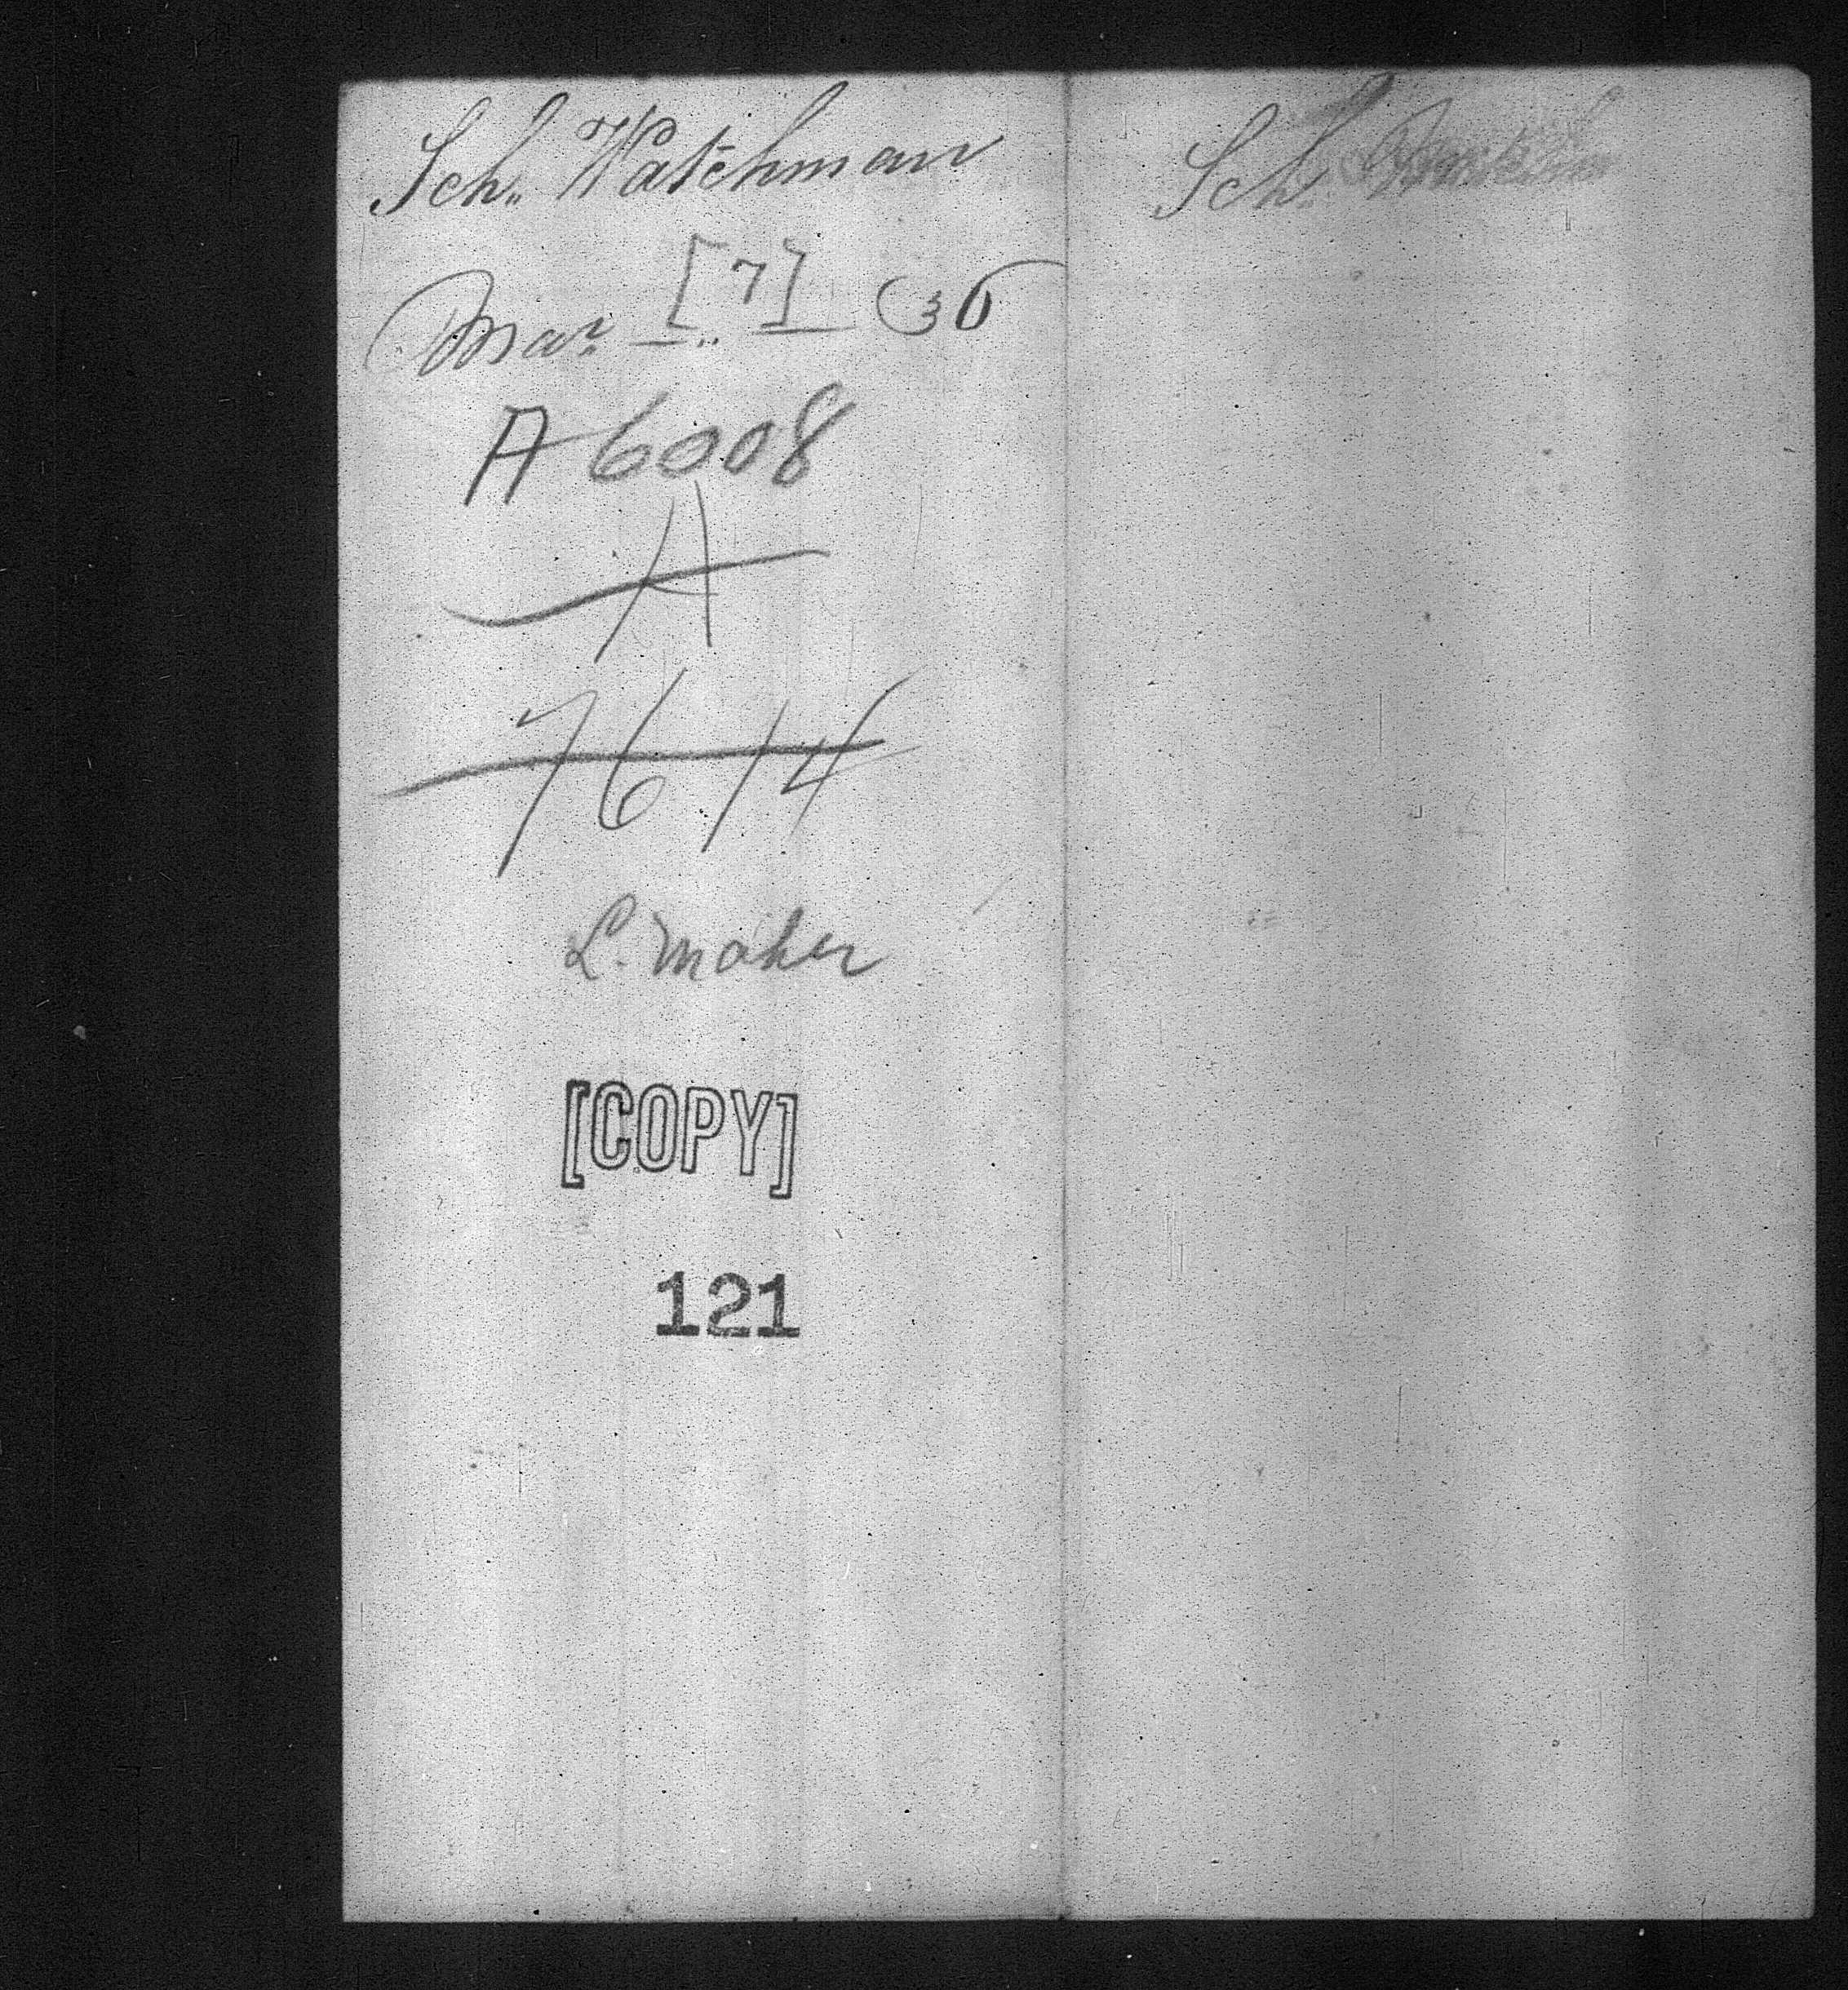 Sch. Watchman
Mar. [7] 36
A 6008
A
7614
L. Maher
[COPY]
121
Sch.